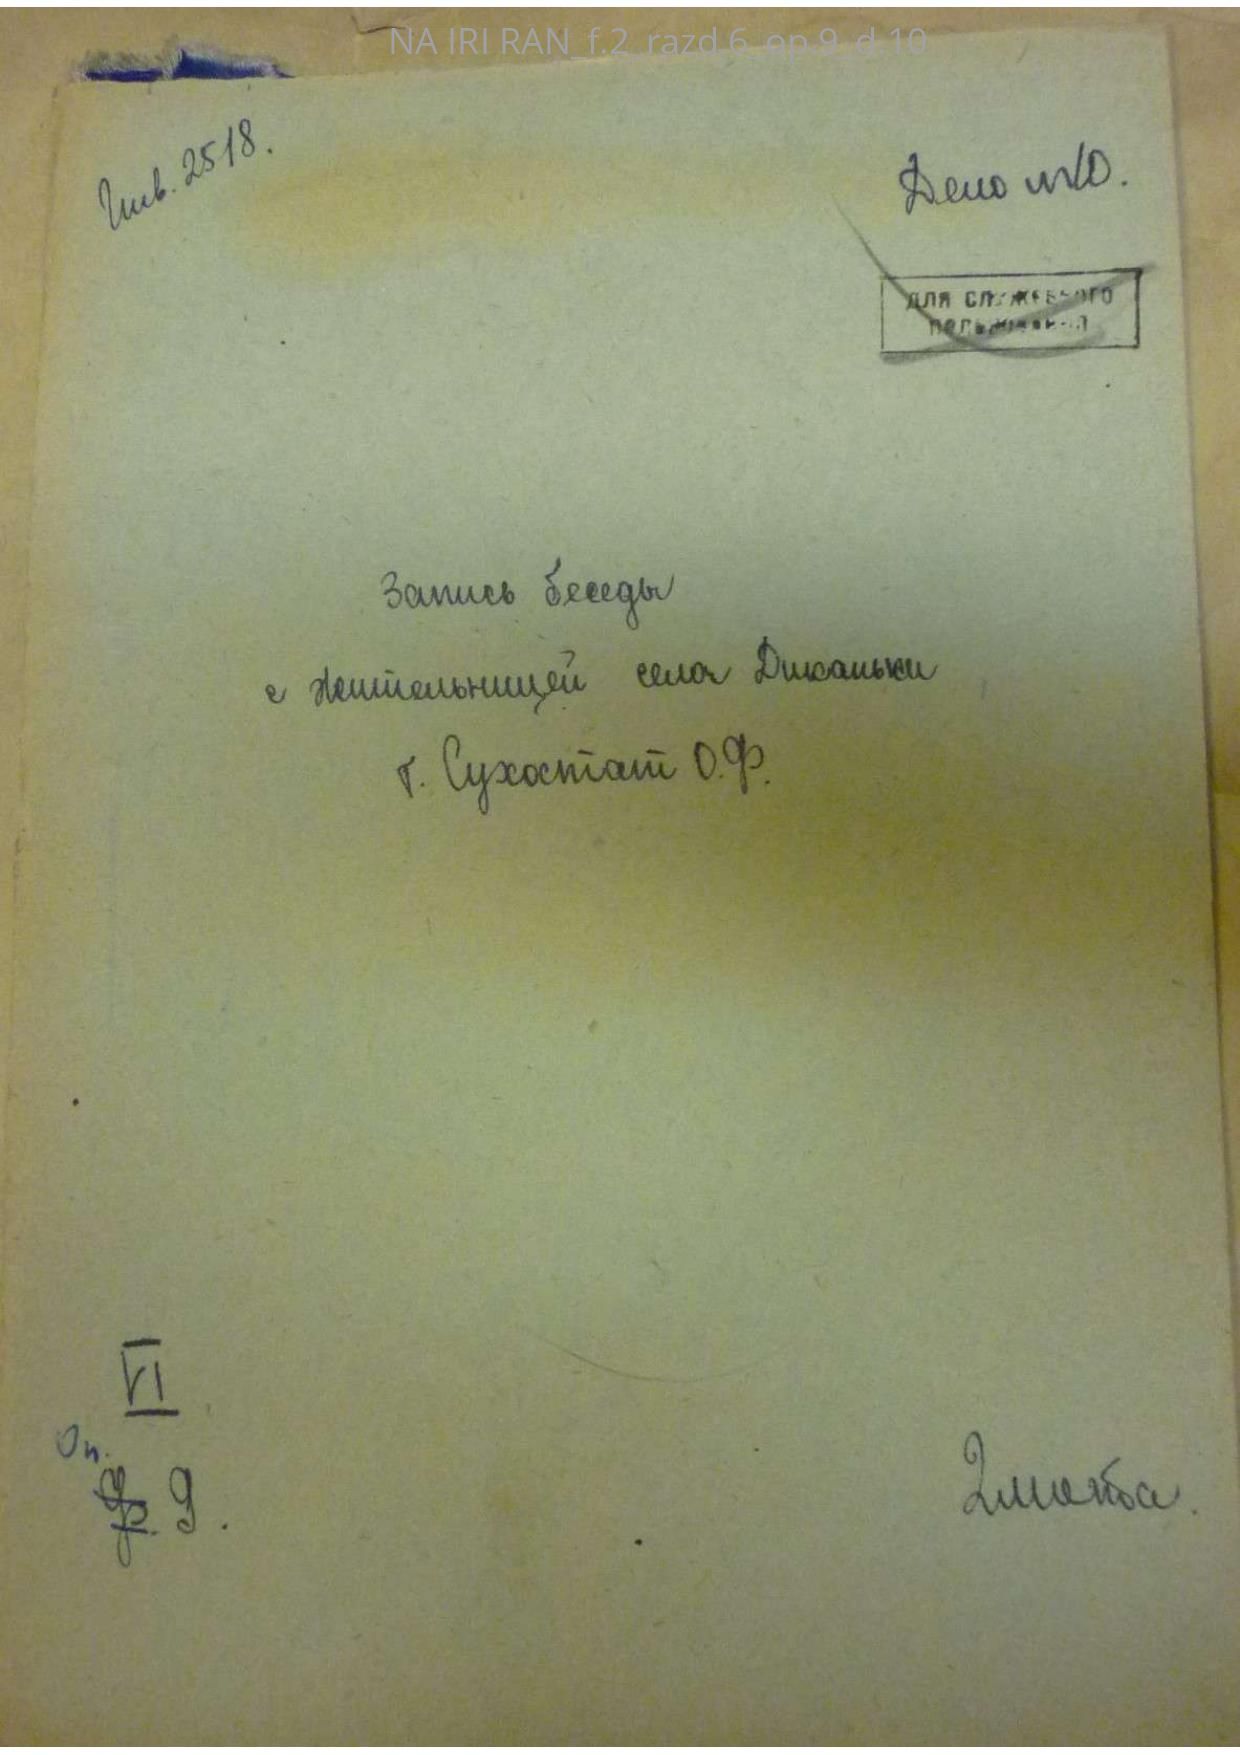 NA IRI RAN_f.2_razd.6_op.9_d.10
Инв. 2518.
Дело №10.
ДЛЯ СЛУЖЕБНОГО
ПОЛЬЗОВАНИЯ
Запись беседы
с жительницей села Диканьки
т. Сухостат О.Ф.
VI
Оп.
Ф. 9.
2 листа.